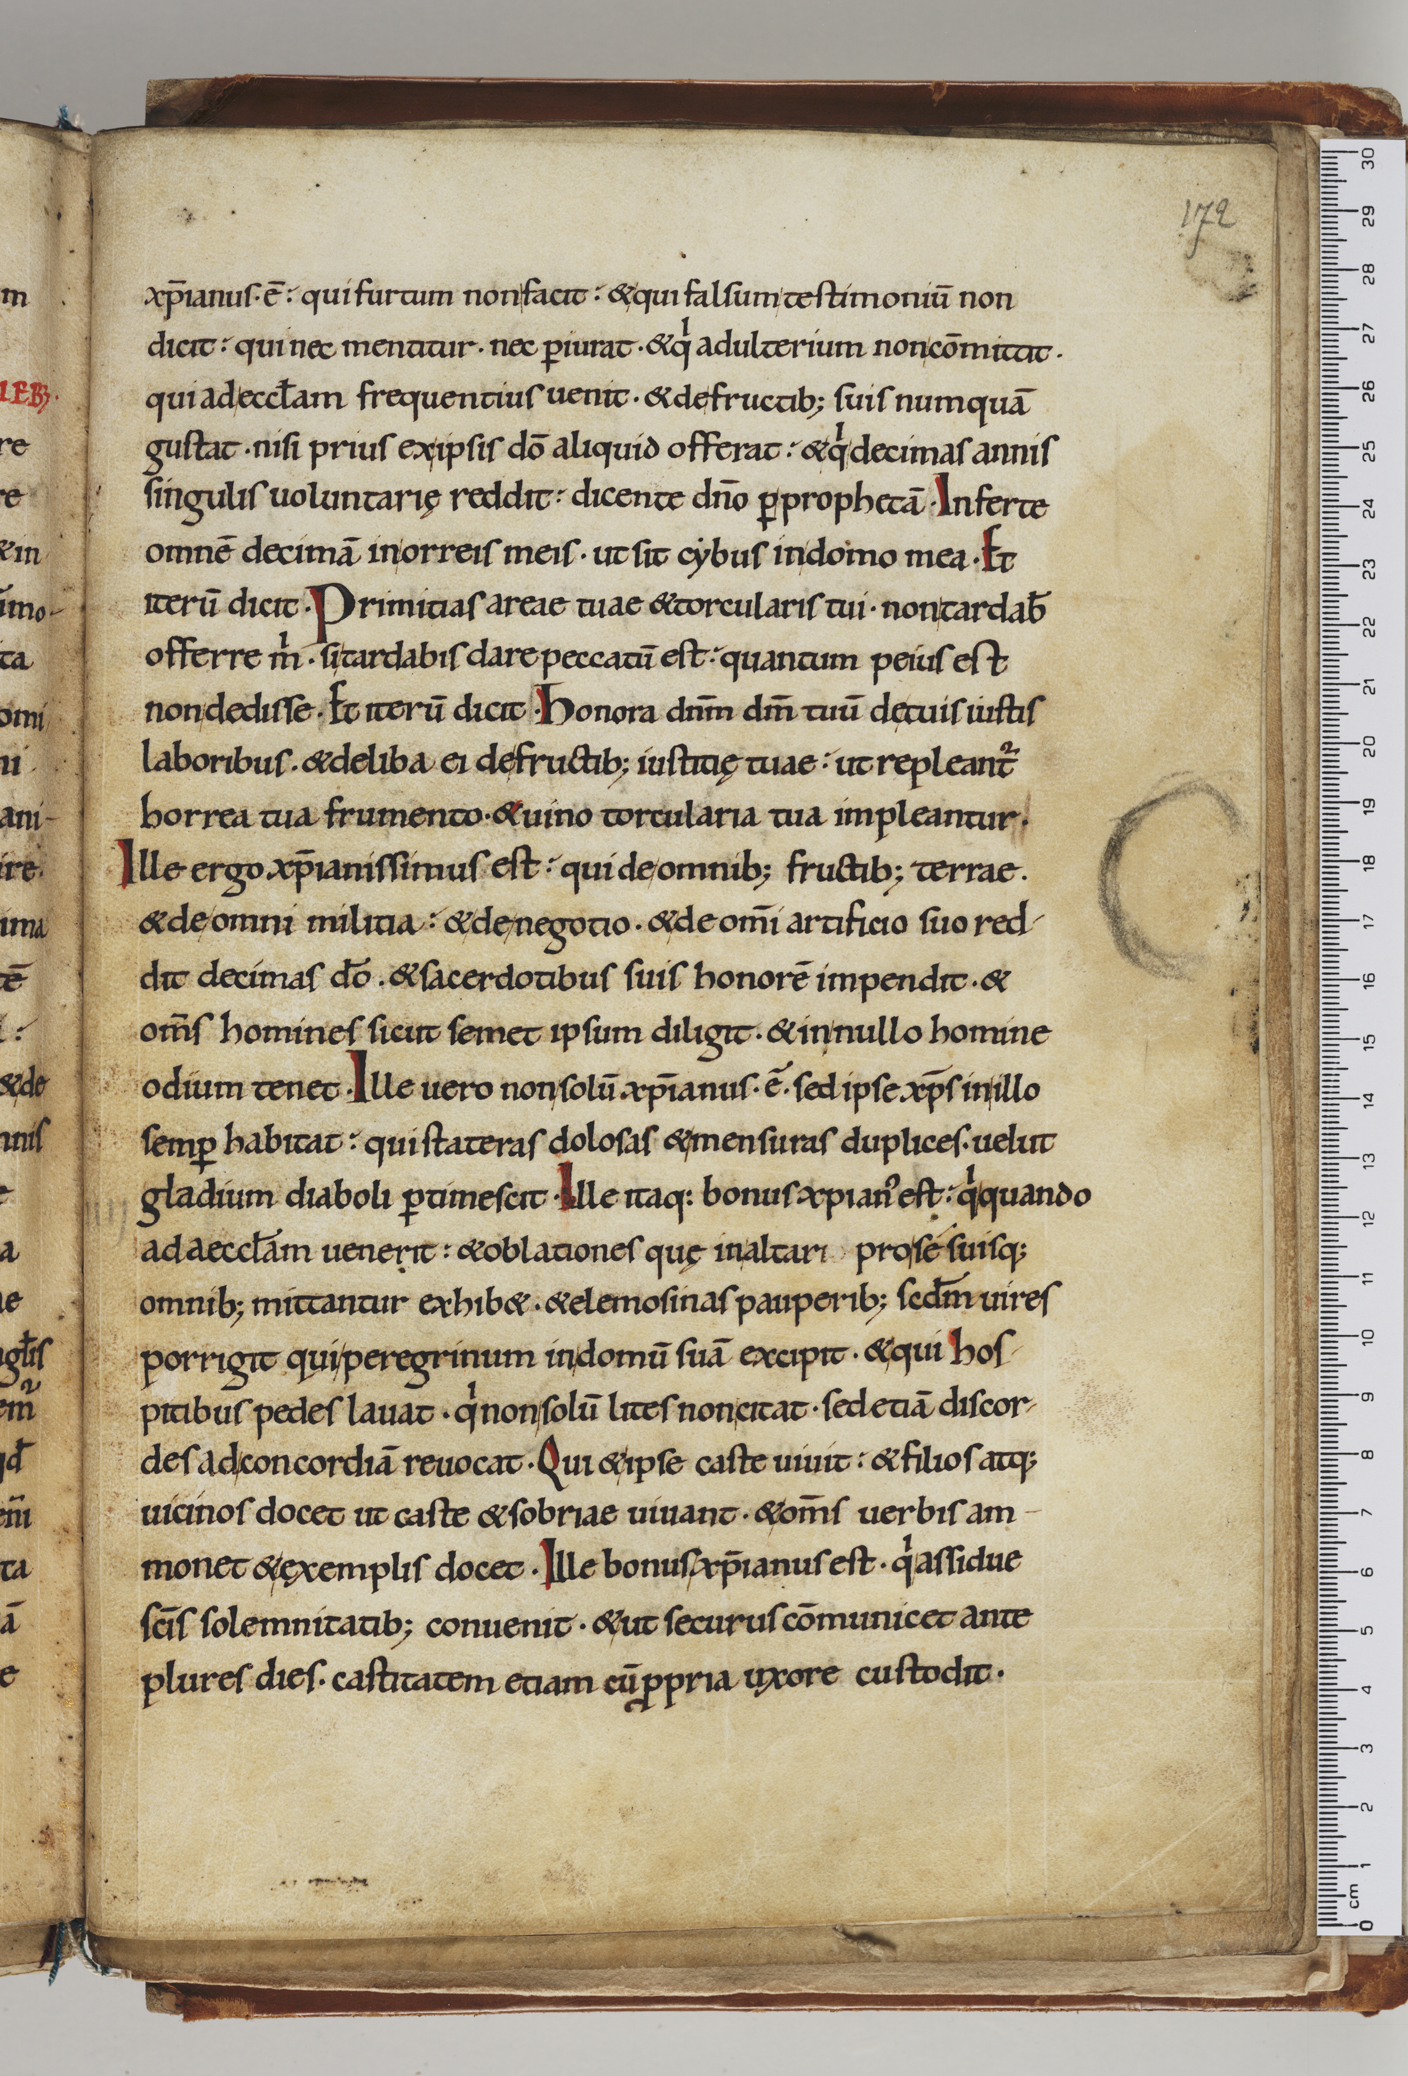 172
xp̄ianus·ē: qui furtum non facit: & qui falsum testimoniū non
dicit: qui nec mentitur· nec ꝑiurat· & qͥ adulterium non cōmittit·
qui ad eccl̄am frequentius uenit· & de fructib; suis numquā
gustat· nisi prius ex ipsis dō aliquid offerat: & qͥ decimas annis
singulis uoluntarię reddit: dicente dn̄o ꝑ prophetā· Inferte
omnē decimā in orreis meis· ut sit cẏbus in domo mea· Et
iterū dicit· Primitias areae tuae & torcularis tui· non tardab̄
offerre mͥ· si tardabis dare peccatū est: quantum peius est
non dedisse· Et iterū dicit· Honora dn̄m dm̄ tuū de tuis iustis
laboribus· & deliba ei de fructib; iustitię tuae: ut repleant᷑
horrea tua frumento· & uino torcularia tua impleantur·
Ille ergo xp̄ianissimus est: qui de omnib; fructib; terrae·
& de omni militia: & de negotio· & de om̄i artificio suo red-
dit decimas dō· & sacerdotibus suis honorē impendit· &
om̄s homines sicut semet ipsum diligit· & in nullo homine
odium tenet· Ille uero non solū xp̄ianus·ē· sed ipse xp̄s in illo
semꝑ habitat: qui stateras dolosas & mensuras duplices· uelut
gladium diaboli ꝑtimescit· Ille itaq: bonus xpianꝰ est: qͥ quando
ad aeccl̄am uenerit: & oblationes quę in altari pro se suisq;
omnib; mittantur exhib&· & elemosinas pauperib; scdm̄ uires
porrigit qui peregrinum in domū suā excipit· & qui hos-
pitibus pedes lauat· qͥ non solū lites non citat· sed etiā discor-
des ad concordiā reuocat· Qui & ipse caste uiuit: & filios atq;
uicinos docet ut caste & sobriae uiuant· & om̄s uerbis am-
monet & exemplis docet· Ille bonus xp̄ianus est· qͥ assidue
sc̄is solemnitatib; conuenit· & ut securus cōmunicet ante
plures dies· castitatem etiam cū ꝓpria uxore custodit·